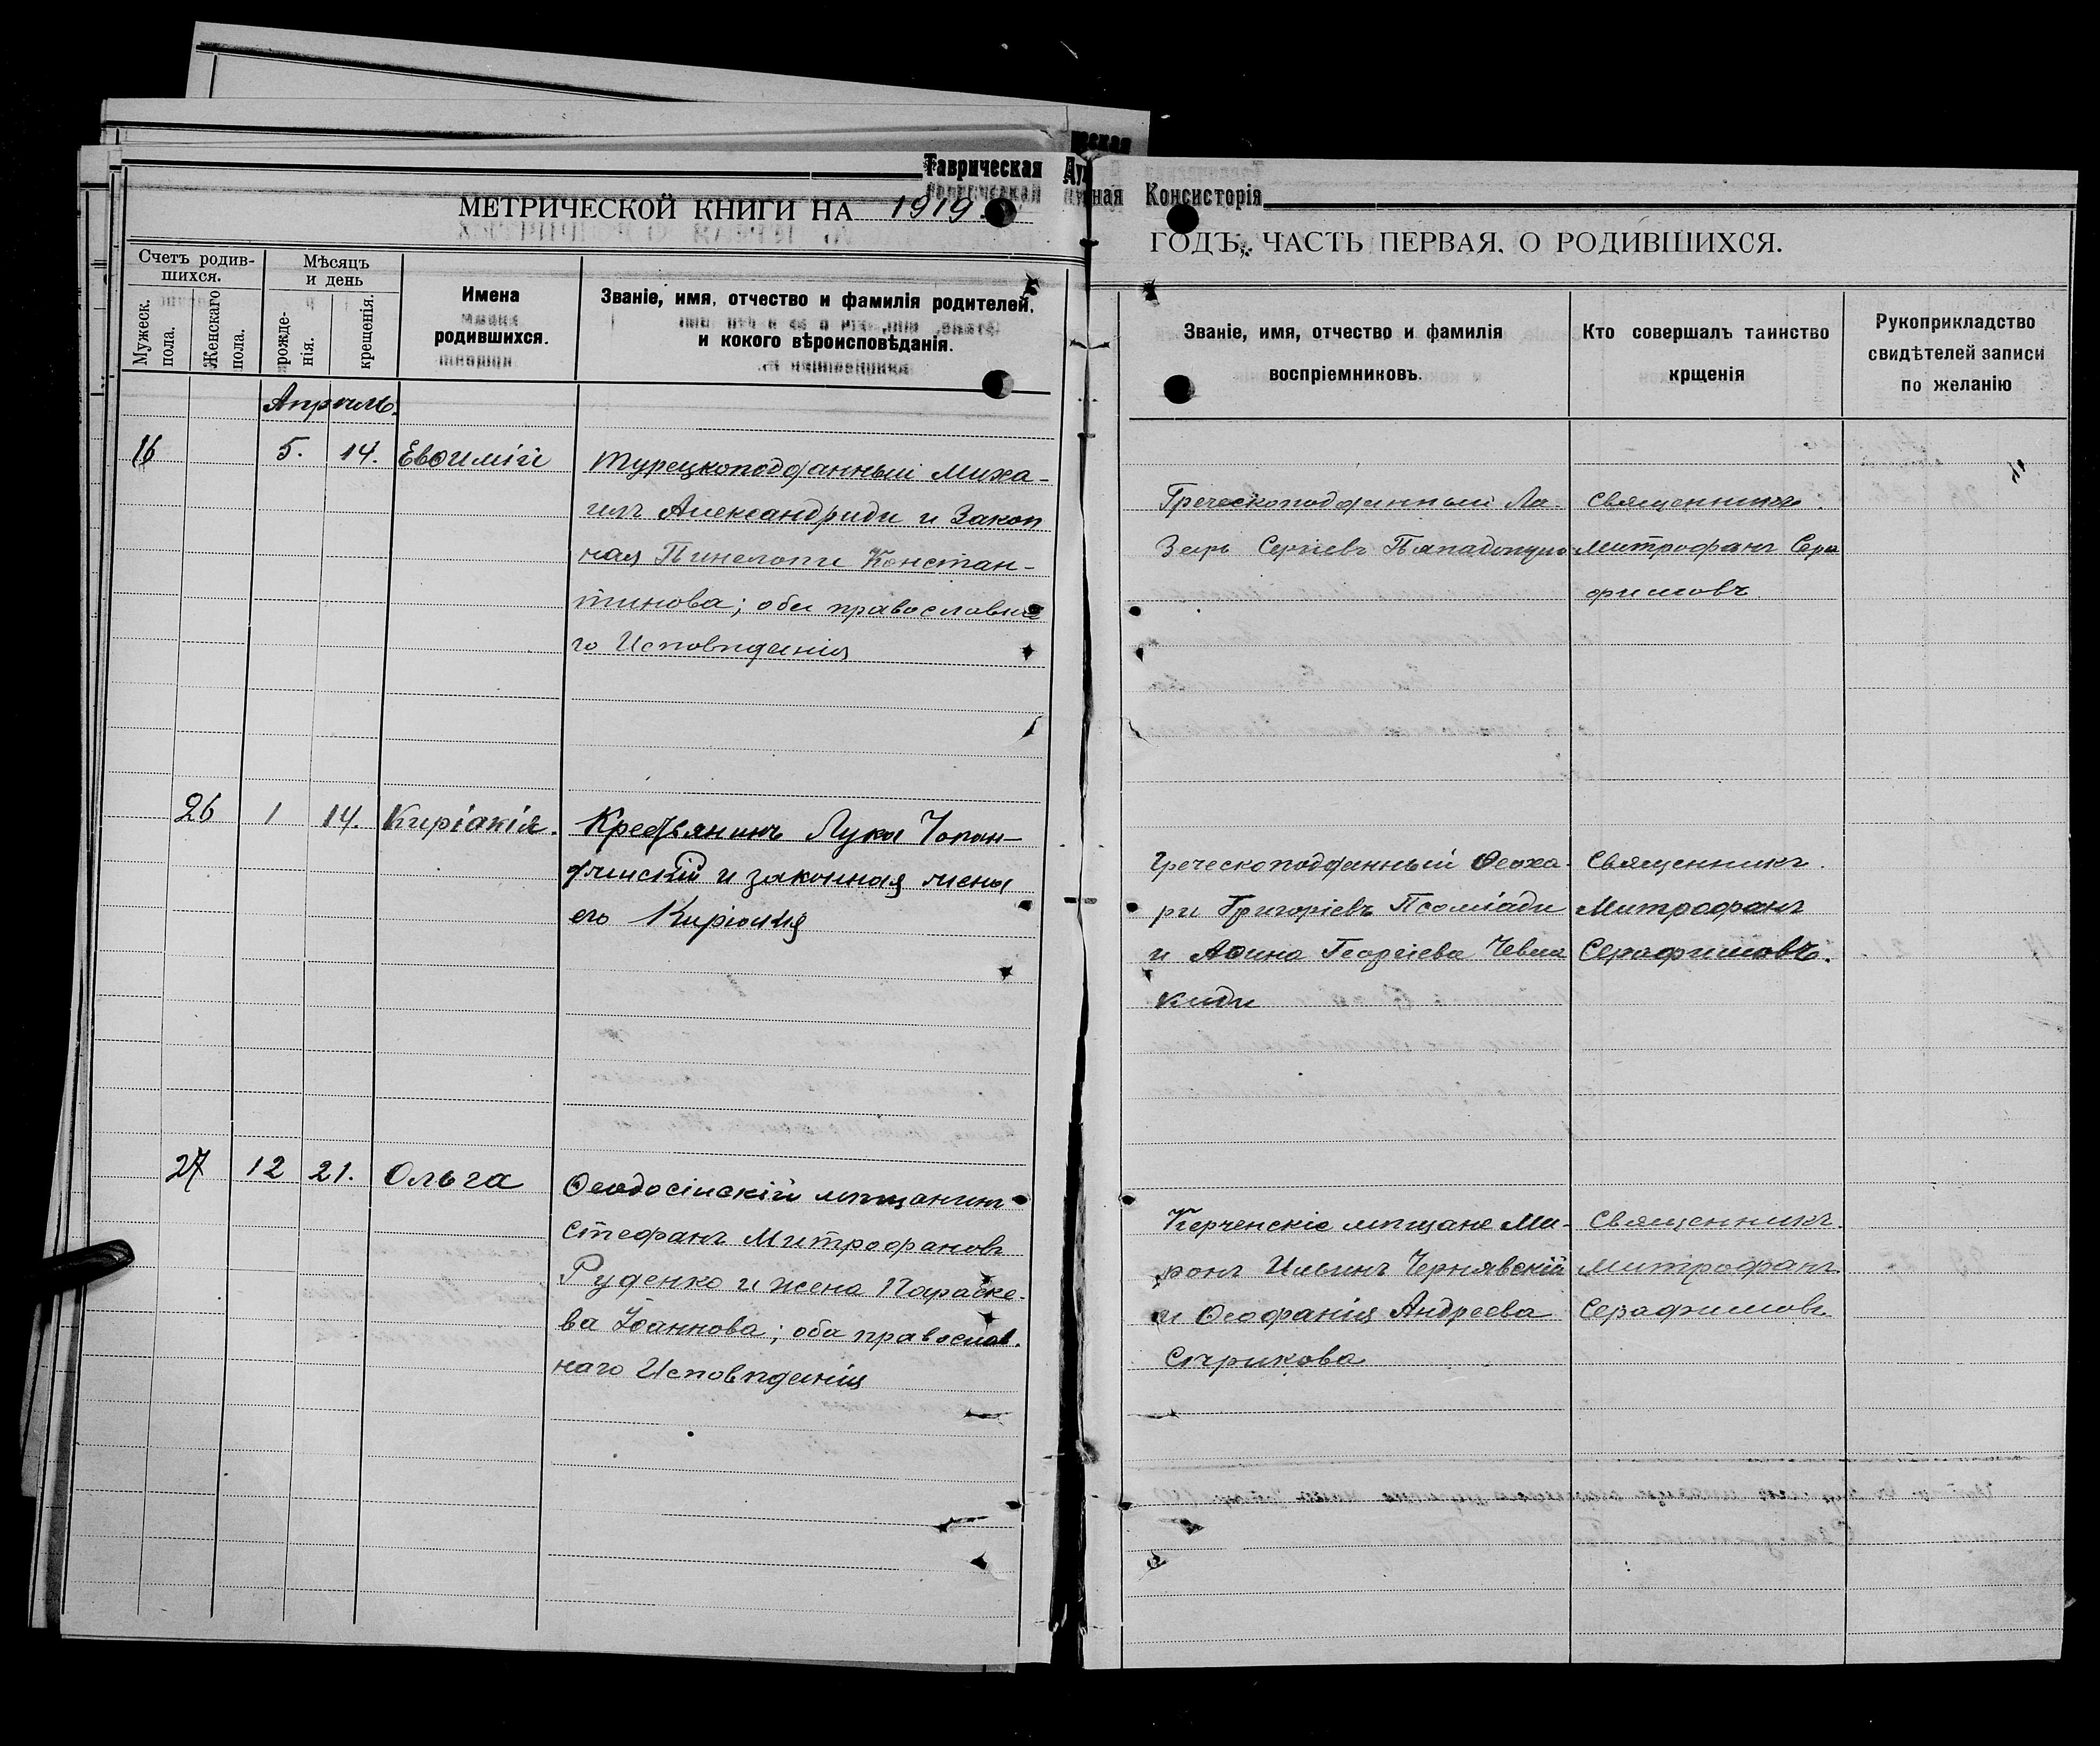 Таврическая Ду
ная Консисторія
МЕТРИЧЕСКОЙ КНИГИ НА 1919
ГОДЪ, ЧАСТЬ ПЕРВАЯ, О РОДИВШИХСЯ.
Счетъ родив-
шихся.
Мужеск.
пола.
Женскаго
пола.
Мѣсяцъ
и день
рожде-
нія.
крещенія.
Имена
родившихся.
Званіе, имя, отчество и фамилія родителей,
и кокого вѣроисповѣданія.
Званіе, имя, отчество и фамилія
воспріемниковъ.
Кто совершалъ таинство
крщенія
Рукоприкладство
свидѣтелей записи
по желанію
Апрѣль.
16 5. 14. Евѳимій
Турецкоподданный Миха-
илъ Александриди и Закон
ная Пинелопи Констан-
тинова; оба православна
го Исповѣданія
Греческоподданный Ла-
Зарь Сергіевъ Пападопуло
Священникъ.
Митрофанъ Сера
фимовъ
26 1 14. Киріакія.
Крестьянинъ Лука
и законная жена
его
Греческоподданный Ѳеоха-
ри Григоріевъ Псоміади
и Аѳина Георгіева
киди
Священникъ.
Митрофанъ
Серафимовъ.
27 12 21. Ольга
Ѳеодосійскій мѣщанинъ
Стефанъ Митрофановъ
Руденко и жена Параске-
ва Іоаннова; оба православ.
наго Исповѣданія
Керченскіе мѣщане Ми-
ронъ Ильинъ Чернявскій
и Ѳеофанія Андреева
Стрикова
Священникъ.
Митрофанъ
Серафимовъ